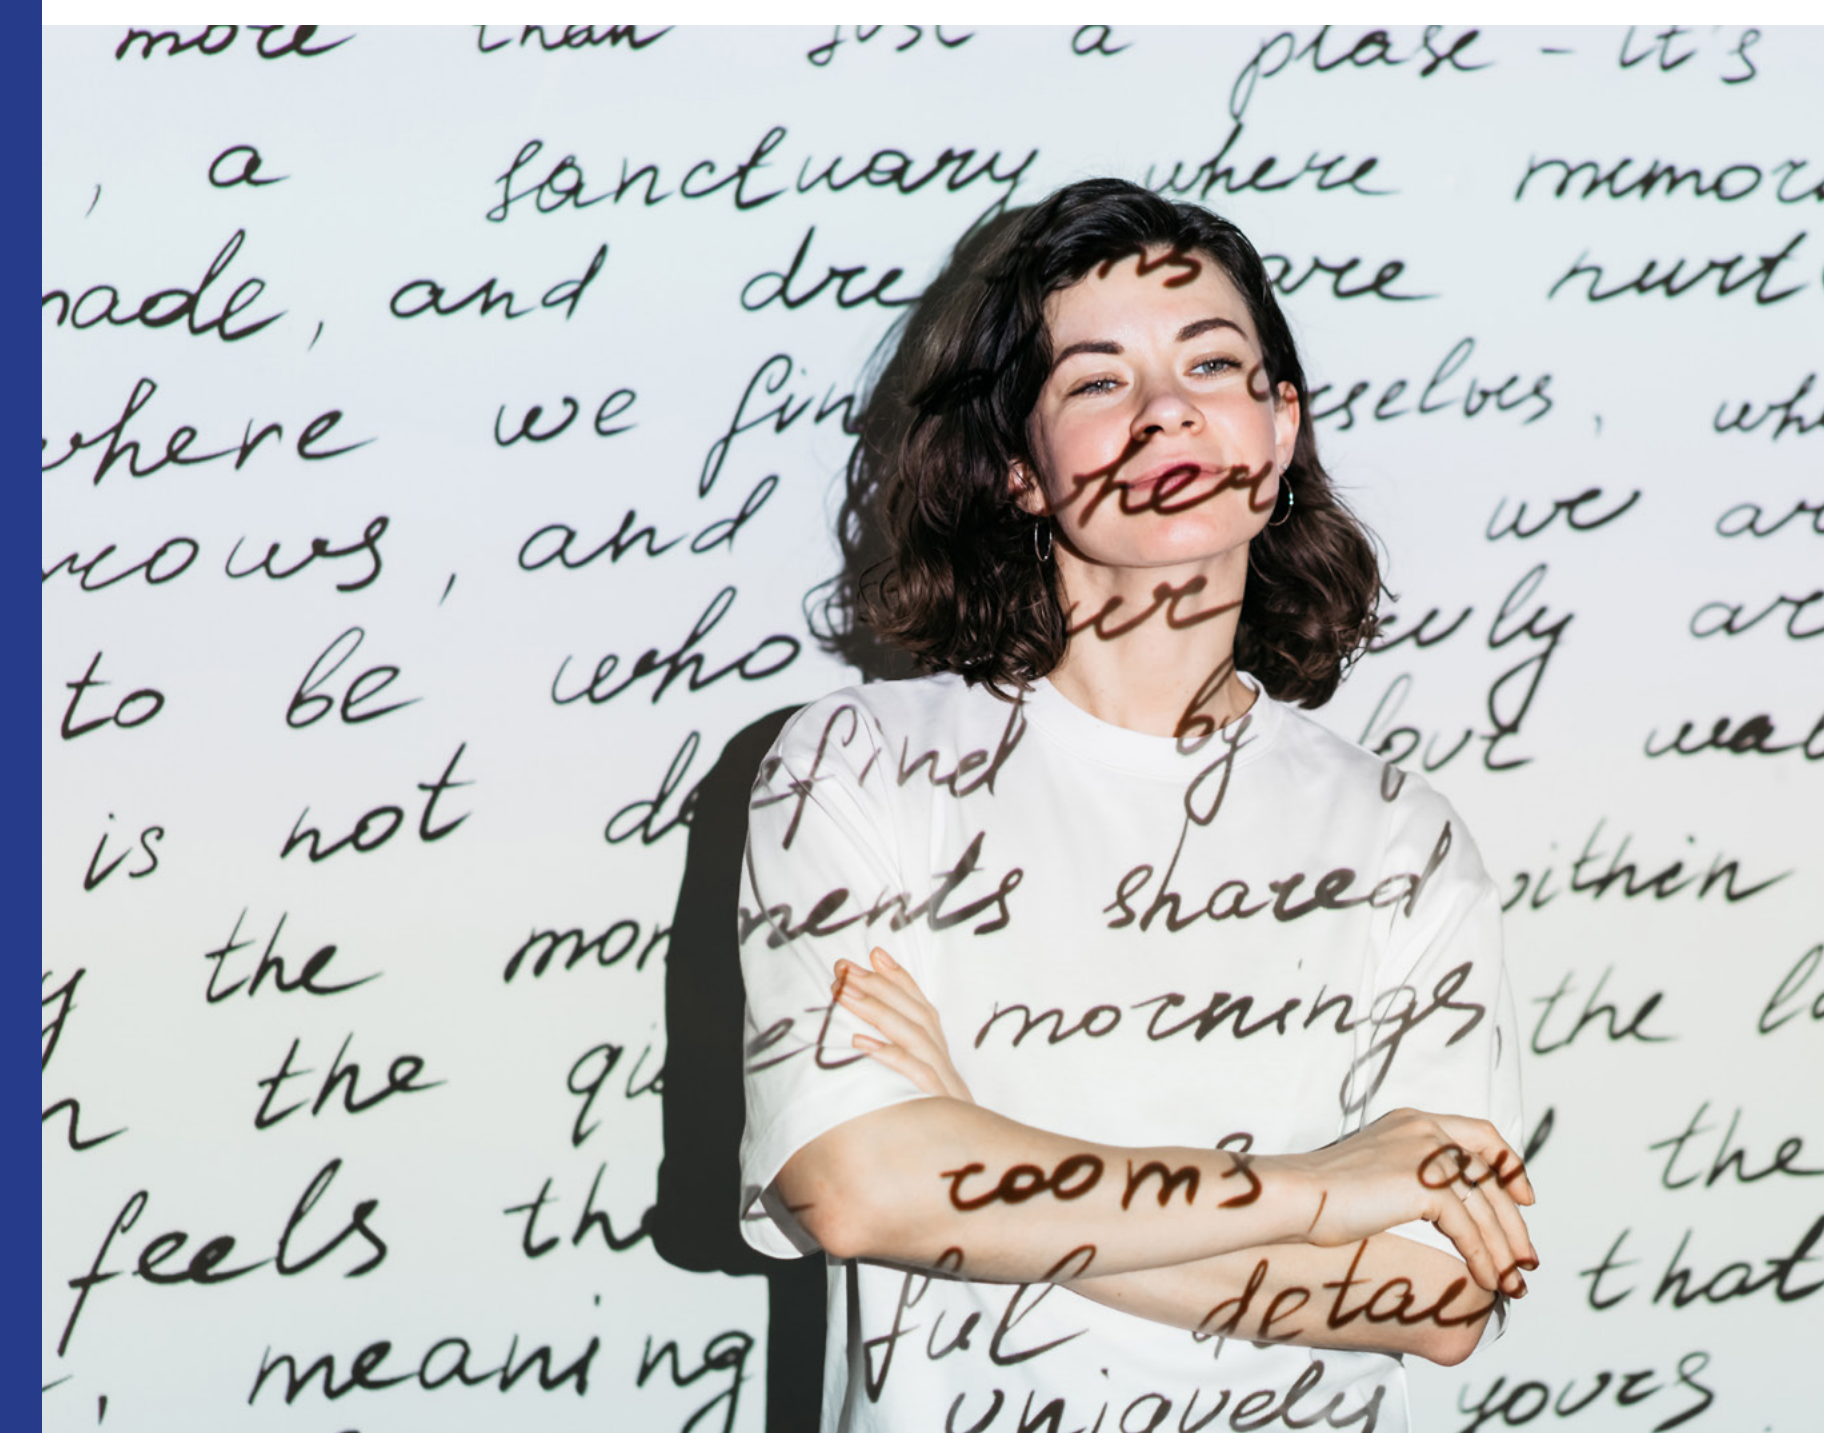 more than just a plase - it's
, a sanctuary where memor
made, and dre ms are nurt
where we fin ourselves, whe
rows, and wher we ar
to be who we truly are
is not defind by love wal
y the moments shared within
n the quiet mornings, the la
feels the rooms, and the
, meaningful detaels that
uniquely yours.